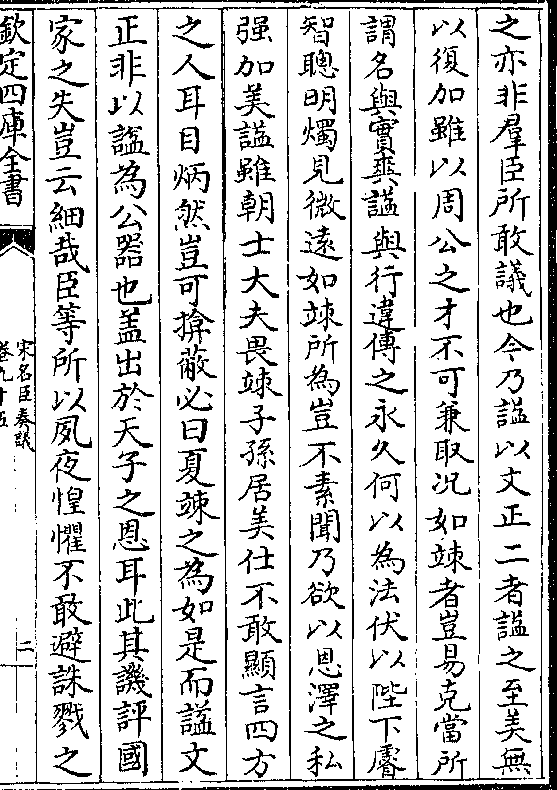 之亦非羣臣所敢議也今乃謚以文正二者謚之至美無
以復加雖以周公之才不可兼取况如竦者豈易克當所
謂名與實爽謚與行違傳之永久何以為法伏以陛下睿
智聰明燭見微遠如竦所為豈不素聞乃欲以恩澤之私
强加美謚雖朝士大夫畏竦子孫居美仕不敢顯言四方
之人耳目炳然豈可揜蔽必曰夏竦之為如是而謚文
正非以謚為公器也盖出於天子之恩耳此其譏評國
家之失豈云細哉臣等所以夙夜惶懼不敢避誅戮之
欽定四庫全書
宋名臣奏議
卷九十五
二